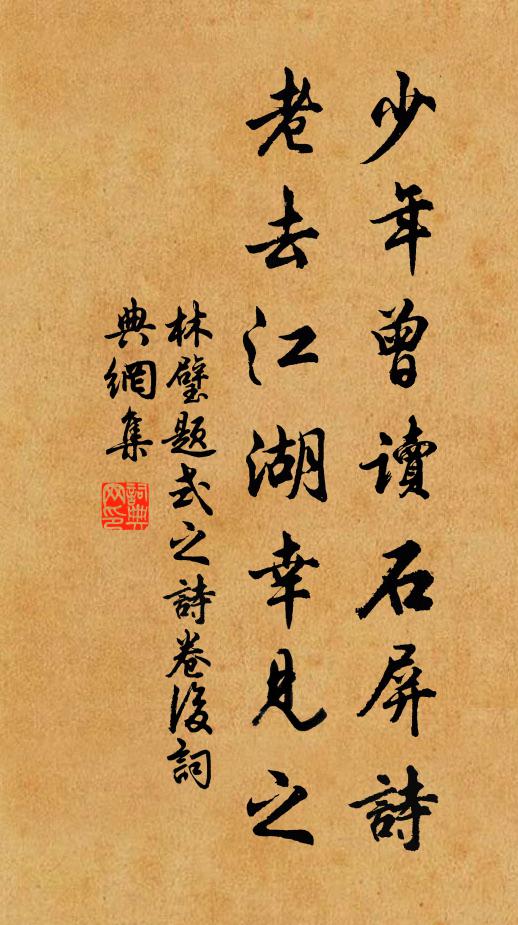 少年曾讀石屏詩
老去江湖幸見之
林璧題式之詩卷後詞
典網集
詞典網印